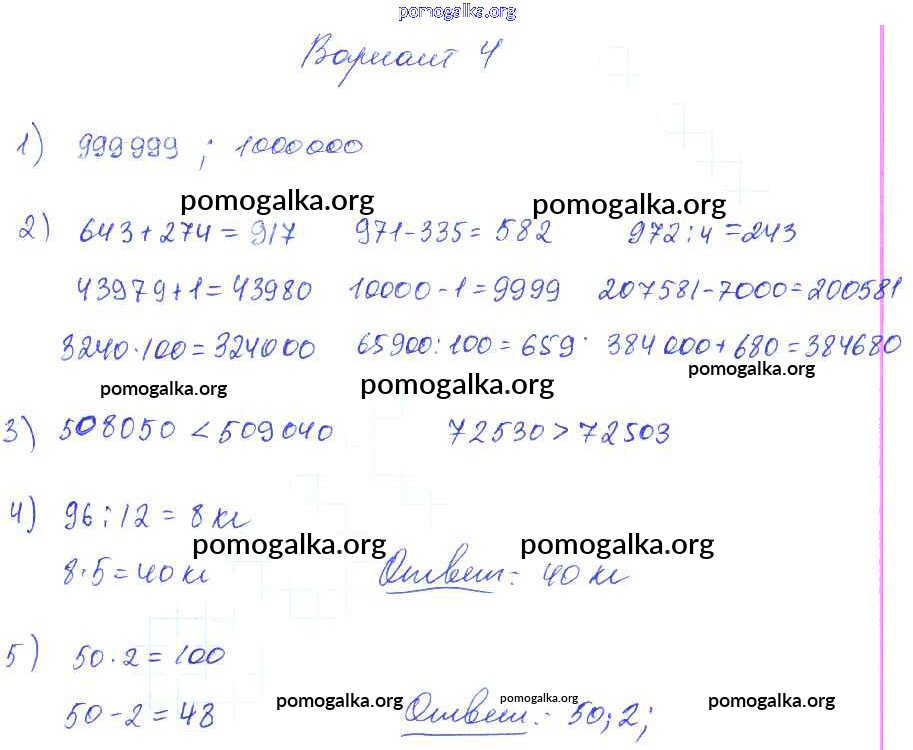 pomogalka.org
Вариант 4
1) 999999 ; 1000000
pomogalka.org pomogalka.org
2) 643+274=917 971-335=582 972:4=243
43979+1=43980 10000-1=9999 207581-7000=200581
3240·100=324000 65900:100=659 384000+680=384680
pomogalka.org pomogalka.org pomogalka.org
3) 508050<509040 72530>72503
4) 96:12=8 кг
pomogalka.org pomogalka.org
8·5=40 кг Ответ: 40 кг
5) 50·2=100
pomogalka.org pomogalka.org pomogalka.org
50-2=48 Ответ: 50; 2;